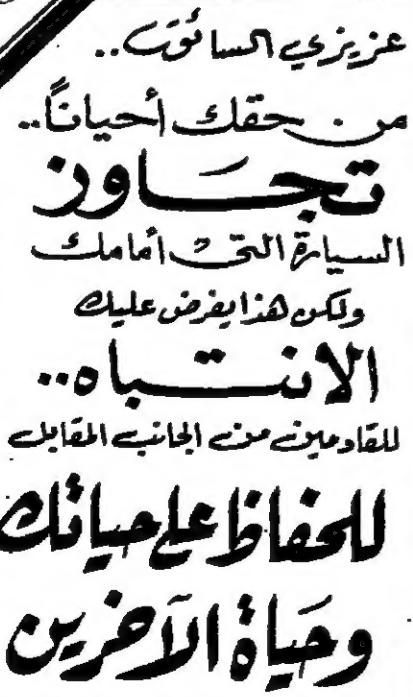 عزيزي السائق..
من حقك أحياناً..
تجَاوز
السيارة التي أمامك
ولكن هذا يفرض عليك
الانتباه..
للقادمين من الجانب المقابل
للحفاظ على حياتك
وحَياة الآخرين